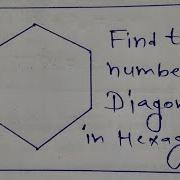 Find t
numbe
Diagon
in Hexag